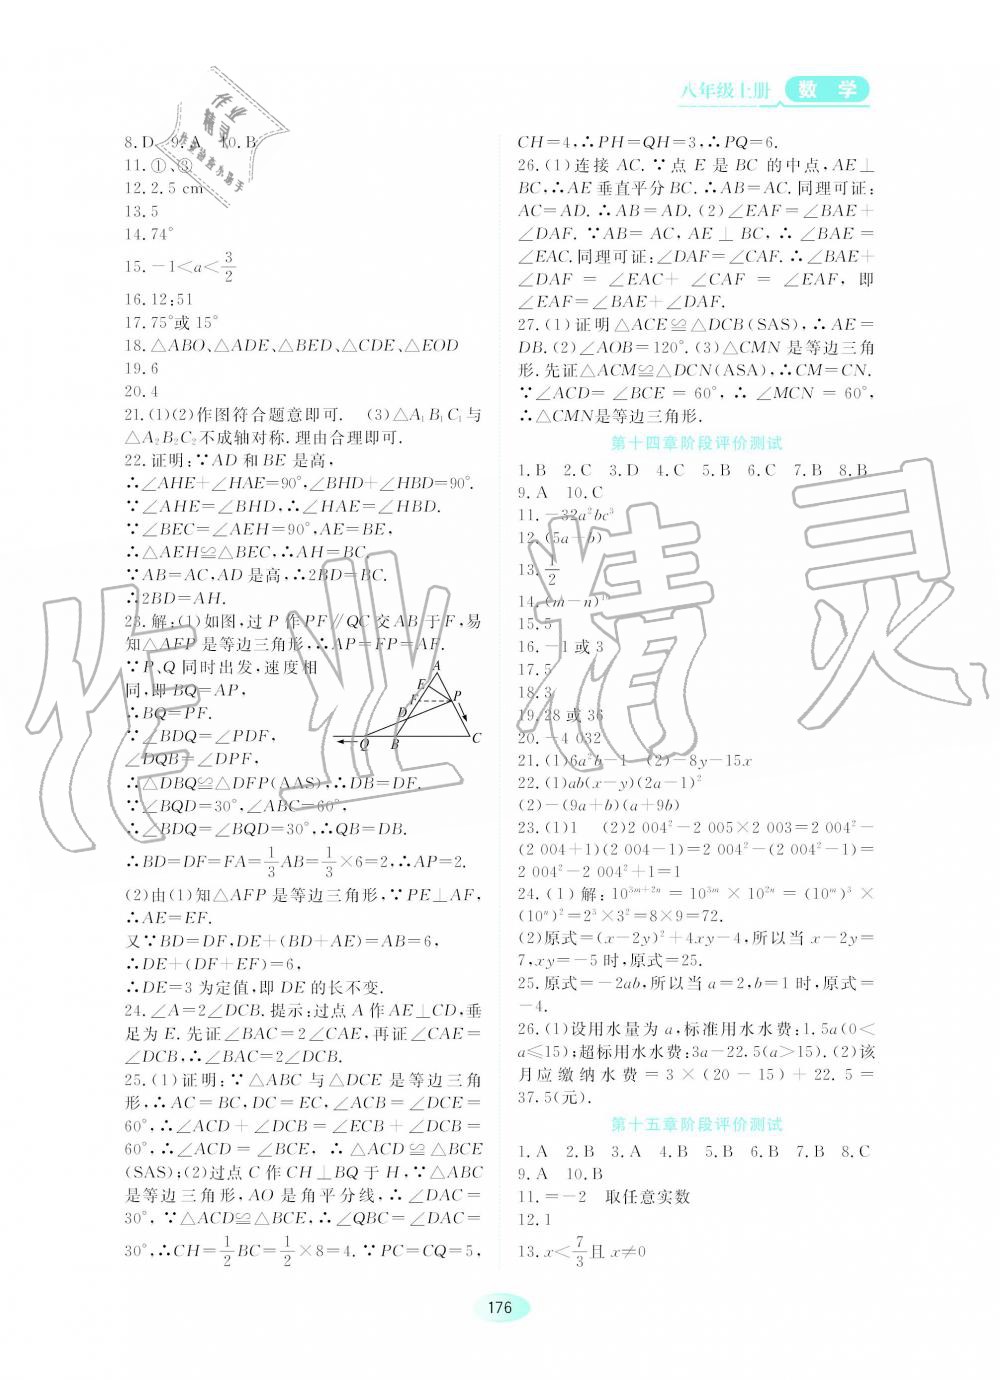 八年级上册 数学
8.D 9.A 10.B
11.①、③
12.2.5 cm
13.5
14.74°
15.-1<a<3/2
16.12:51
17.75°或15°
18.△ABO、△ADE、△BED、△CDE、△EOD
19.6
20.4
21.(1)(2)作图符合题意即可. (3)△A₁B₁C₁与
△A₂B₂C₂不成轴对称.理由合理即可.
22.证明:∵AD和BE是高,
∴∠AHE+∠HAE=90°,∠BHD+∠HBD=90°.
∵∠AHE=∠BHD,∴∠HAE=∠HBD.
∵∠BEC=∠AEH=90°,AE=BE,
∴△AEH≌△BEC,∴AH=BC.
∵AB=AC,AD是高,∴2BD=BC.
∴2BD=AH.
23.解:(1)如图,过P作PF∥QC交AB于F,易
知△AFP是等边三角形,∴AP=FP=AF.
∵P、Q同时出发,速度相
同,即BQ=AP,
∴BQ=PF.
∵∠BDQ=∠PDF,
∠DQB=∠DPF,
∴△DBQ≌△DFP(AAS),∴DB=DF.
∵∠BQD=30°,∠ABC=60°,
∴∠BDQ=∠BQD=30°,∴QB=DB.
∴BD=DF=FA=1/3AB=1/3×6=2,∴AP=2.
(2)由(1)知△AFP是等边三角形,∵PE⊥AF,
∴AE=EF.
又∵BD=DF,DE+(BD+AE)=AB=6,
∴DE+(DF+EF)=6,
∴DE=3为定值,即DE的长不变.
24.∠A=2∠DCB.提示:过点A作AE⊥CD,垂
足为E.先证∠BAC=2∠CAE,再证∠CAE=
∠DCB,∴∠BAC=2∠DCB.
25.(1)证明:∵△ABC与△DCE是等边三角
形,∴AC=BC,DC=EC,∠ACB=∠DCE=
60°,∴∠ACD+∠DCB=∠ECB+∠DCB=
60°,∴∠ACD=∠BCE,∴△ACD≌△BCE
(SAS);(2)过点C作CH⊥BQ于H,∵△ABC
是等边三角形,AO是角平分线,∴∠DAC=
30°,∵△ACD≌△BCE,∴∠QBC=∠DAC=
30°,∴CH=1/2BC=1/2×8=4.∵PC=CQ=5,
A
E
F
P
D
Q
B
C
CH=4,∴PH=QH=3,∴PQ=6.
26.(1)连接AC.∵点E是BC的中点,AE⊥
BC,∴AE垂直平分BC.∴AB=AC.同理可证:
AC=AD.∴AB=AD.(2)∠EAF=∠BAE+
∠DAF.∵AB=AC,AE⊥BC,∴∠BAE=
∠EAC.同理可证:∠DAF=∠CAF.∴∠BAE+
∠DAF=∠EAC+∠CAF=∠EAF,即
∠EAF=∠BAE+∠DAF.
27.(1)证明△ACE≌△DCB(SAS),∴AE=
DB.(2)∠AOB=120°.(3)△CMN是等边三角
形.先证△ACM≌△DCN(ASA),∴CM=CN.
∵∠ACD=∠BCE=60°,∴∠MCN=60°,
∴△CMN是等边三角形.
第十四章阶段评价测试
1.B 2.C 3.D 4.C 5.B 6.C 7.B 8.B
9.A 10.C
11.-32a²bc³
12.(5a-b)
13.1/2
14.(m-n)
15.5
16.-1或3
17.5
18.3
19.28或36
20.-4 032
21.(1)6a²b-1 (2)-8y-15x
22.(1)ab(x-y)(2a-1)²
(2)-(9a+b)(a+9b)
23.(1)1 (2)2 004²-2 005×2 003=2 004²-
(2 004+1)(2 004-1)=2 004²-(2 004²-1)=
2 004²-2 004²+1=1
24.(1)解:10³ᵐ⁺²ⁿ=10³ᵐ×10²ⁿ=(10ᵐ)³×
(10ⁿ)²=2³×3²=8×9=72.
(2)原式=(x-2y)²+4xy-4,所以当x-2y=
7,xy=-5时,原式=25.
25.原式=-2ab,所以当a=2,b=1时,原式=
-4.
26.(1)设用水量为a,标准用水水费:1.5a(0<
a≤15);超标用水水费:3a-22.5(a>15).(2)该
月应缴纳水费=3×(20-15)+22.5=
37.5(元).
第十五章阶段评价测试
1.A 2.B 3.A 4.B 5.B 6.B 7.B 8.C
9.A 10.B
11.=-2 取任意实数
12.1
13.x<7/3且x≠0
176
作业精灵